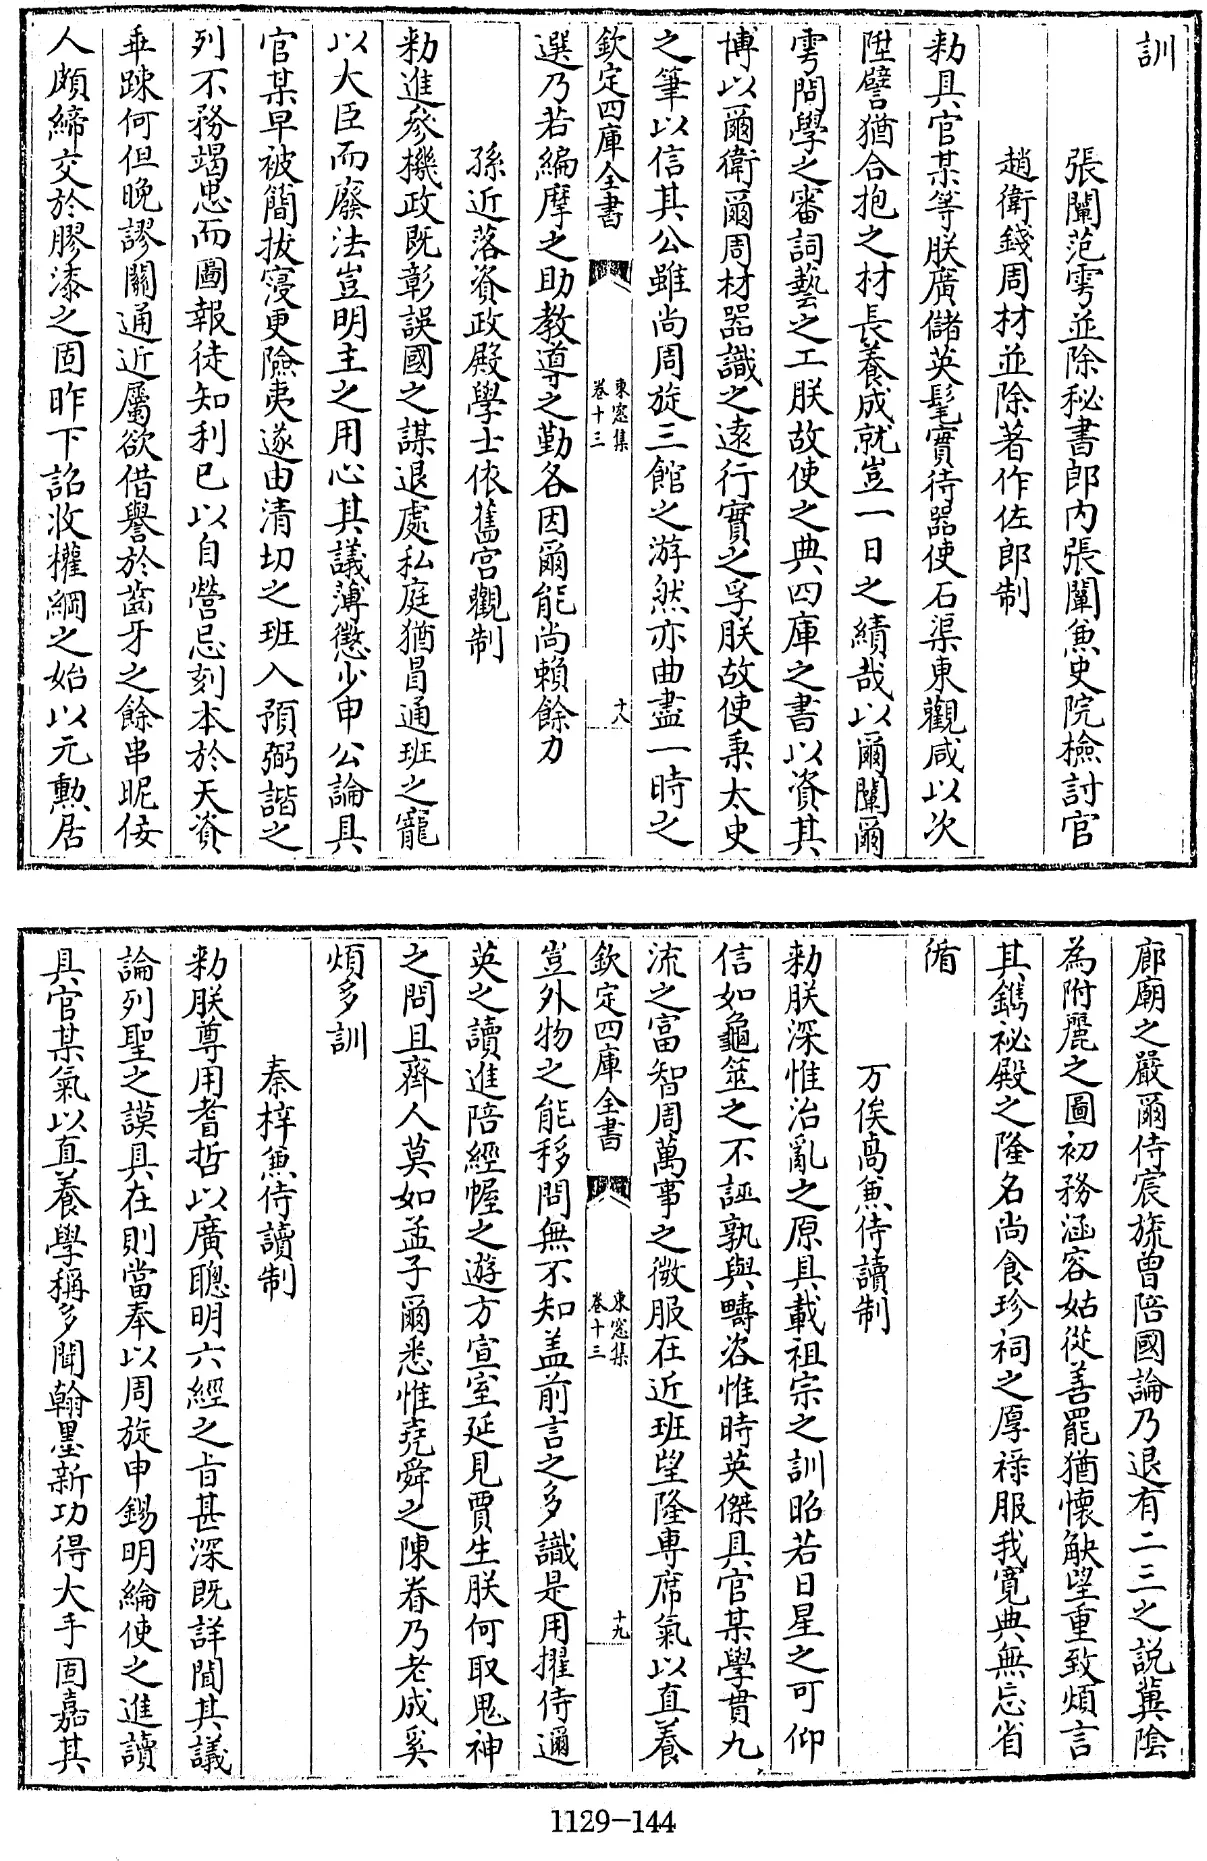 訓
張闡范雩並除秘書郎内張闡兼史院檢討官
趙衛錢周材並除著作佐郎制
勑具官某等朕廣儲英髦實待器使石渠東觀咸以次
陞譬猶合抱之材長養成就豈一日之績哉以爾闡爾
雩問學之審詞藝之工朕故使之典四庫之書以資其
博以爾衛爾周材器識之逺行實之孚朕故使秉太史
之筆以信其公雖尚周旋三館之游然亦曲盡一時之
欽定四庫全書
東窓集
卷十三
十八
選乃若編摩之助教導之勤各因爾能尚賴餘力
孫近落資政殿學士依舊宫觀制
勑進參機政既彰誤國之謀退處私庭猶冒通班之寵
以大臣而廢法豈明主之用心其議薄懲少申公論具
官某早被簡拔寖更險夷遂由清切之班入預弼諧之
列不務竭忠而圖報徒知利已以自營忌刻本於天資
乖踈何但晚謬關通近屬欲借譽於齒牙之餘串昵佞
人頗締交於膠漆之固昨下詔收權綱之始以元勲居
廊廟之嚴爾侍宸旒曾陪國論乃退有二三之説冀隂
為附麗之圖初務涵容姑從善罷猶懷觖望重致煩言
其鐫祕殿之隆名尚食珍祠之厚禄服我寛典無忘省
循
万俟卨兼侍讀制
勑朕深惟治亂之原具載祖宗之訓昭若日星之可仰
信如龜筮之不誣孰與疇咨惟時英傑具官某學貫九
流之富智周萬事之微服在近班望隆專席氣以直養
欽定四庫全書
東窓集
卷十三
十九
豈外物之能移問無不知盖前言之多識是用擢侍邇
英之讀進陪經幄之遊方宣室延見賈生朕何取鬼神
之問且齊人莫如孟子爾悉惟堯舜之陳眷乃老成奚
煩多訓
秦梓兼侍讀制
勑朕尊用耆哲以廣聰明六經之㫖甚深既詳聞其議
論列聖之謨具在則當奉以周旋申錫明綸使之進讀
具官某氣以直養學稱多聞翰墨新功得大手固嘉其
1129-144